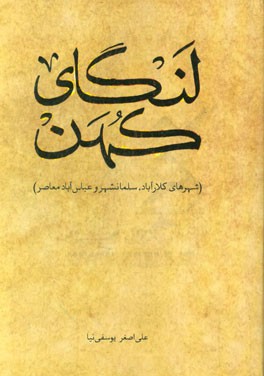 لَنگای
کُهَن
(شهرهای کلارآباد، سلمانشهر و عباس‌آباد معاصر)
علی‌اصغر یوسفی‌نیا